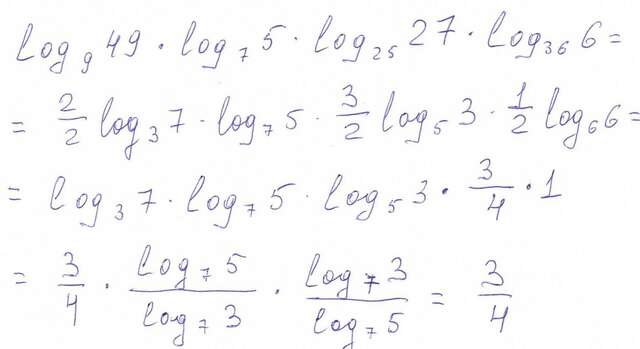 log₉49 · log₇5 · log₂₅27 · log₃₆6 =
= 2/2 log₃7 · log₇5 · 3/2 log₅3 · 1/2 log₆6 =
= log₃7 · log₇5 · log₅3 · 3/4 · 1
= 3/4 · log₇5/log₇3 · log₇3/log₇5 = 3/4